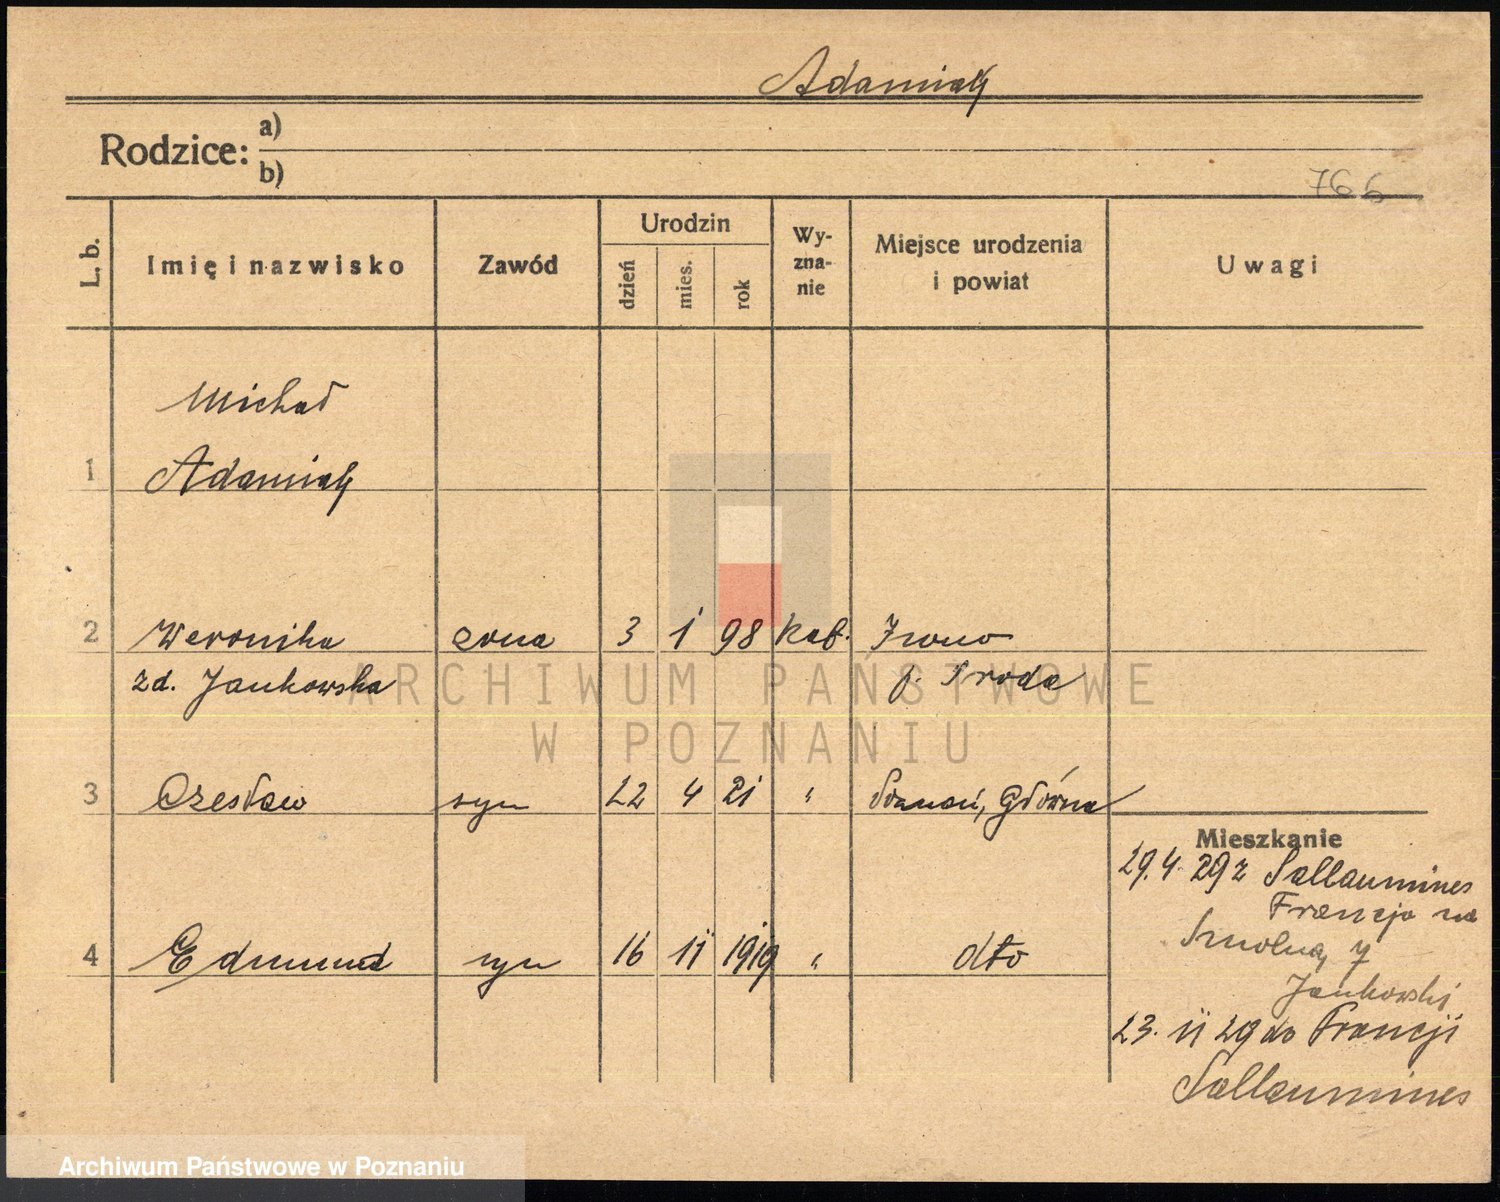 Adamiak
Rodzice: a)
b)
766
L. b.
Imię i nazwisko
Zawód
Urodzin
dzień mies. rok
Wy-
zna-
nie
Miejsce urodzenia
i powiat
Uwagi
Michał
1 Adamiak
2 Weronika żona 3 1 98 kat.
zd. Jankowska p. Środa
3 Czesław syn 22 4 21 " Poznań, Główna
Mieszkanie
29.4.29 z Sallaumines
Francja na
4 Edmund syn 16 11 1919 " dto
Smolną 7
Jankowski
23. 11 29 do Francji
Sallaumines
ARCHIWUM PAŃSTWOWE
W POZNANIU
Archiwum Państwowe w Poznaniu